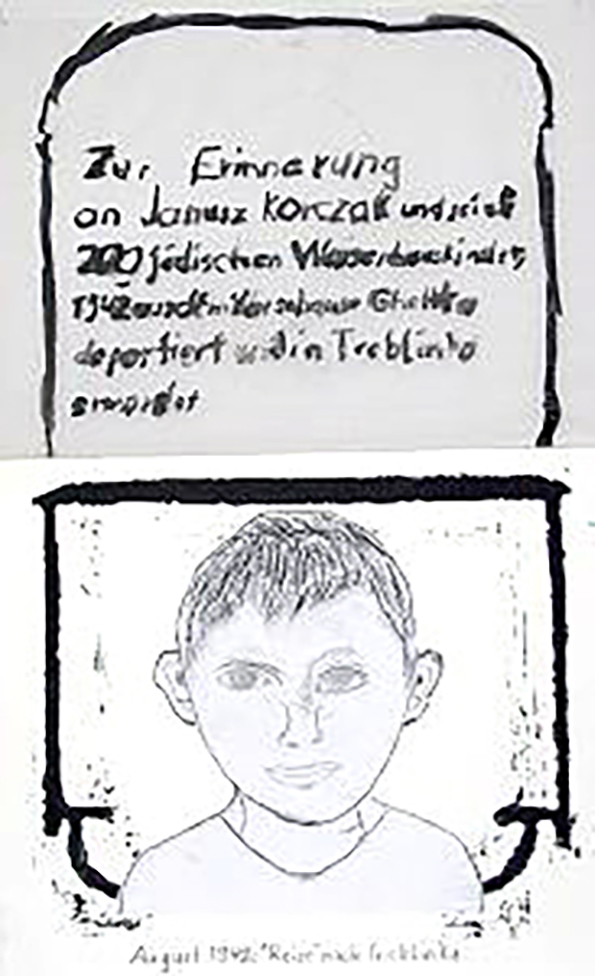 Zur Erinnerung
an Janusz Korczak und seine
200 jüdischen Waisenhauskinder,
1942 aus dem Warschauer Ghetto
deportiert und in Treblinka
ermordet
August 1942: "Reise" nach Treblinka